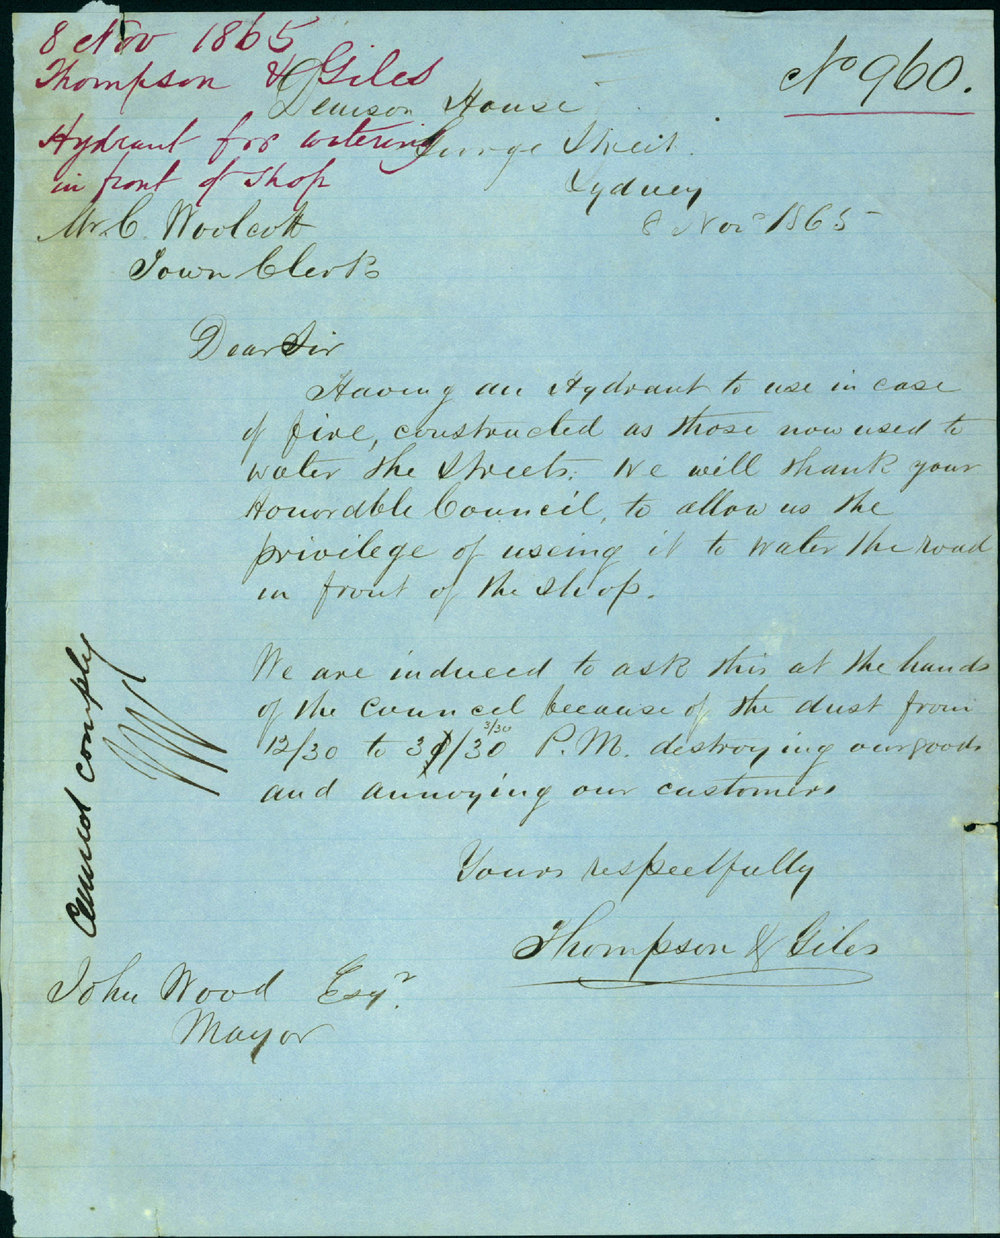 8 Nov 1865
Thompson & Giles
Hydrant for watering
in front of shop
No 960.
Denison House
George Street
Sydney
8 Novr 1865
Mr C. Woolcott
Town Clerk
Dear Sir
Having an Hydrant to use in case
of fire, constructed as those now used to
water the Streets. We will thank your
Honorable Council, to allow us the
privilege of useing it to water the road
in front of the shop.
We are induced to ask this at the hands
of the Council because of the dust from
3/30
12/30 to 3/30 P.M. destroying our goods
and annoying our customers
Yours respectfully
Thompson & Giles
John Wood Esqr.
Mayor
Cannot comply